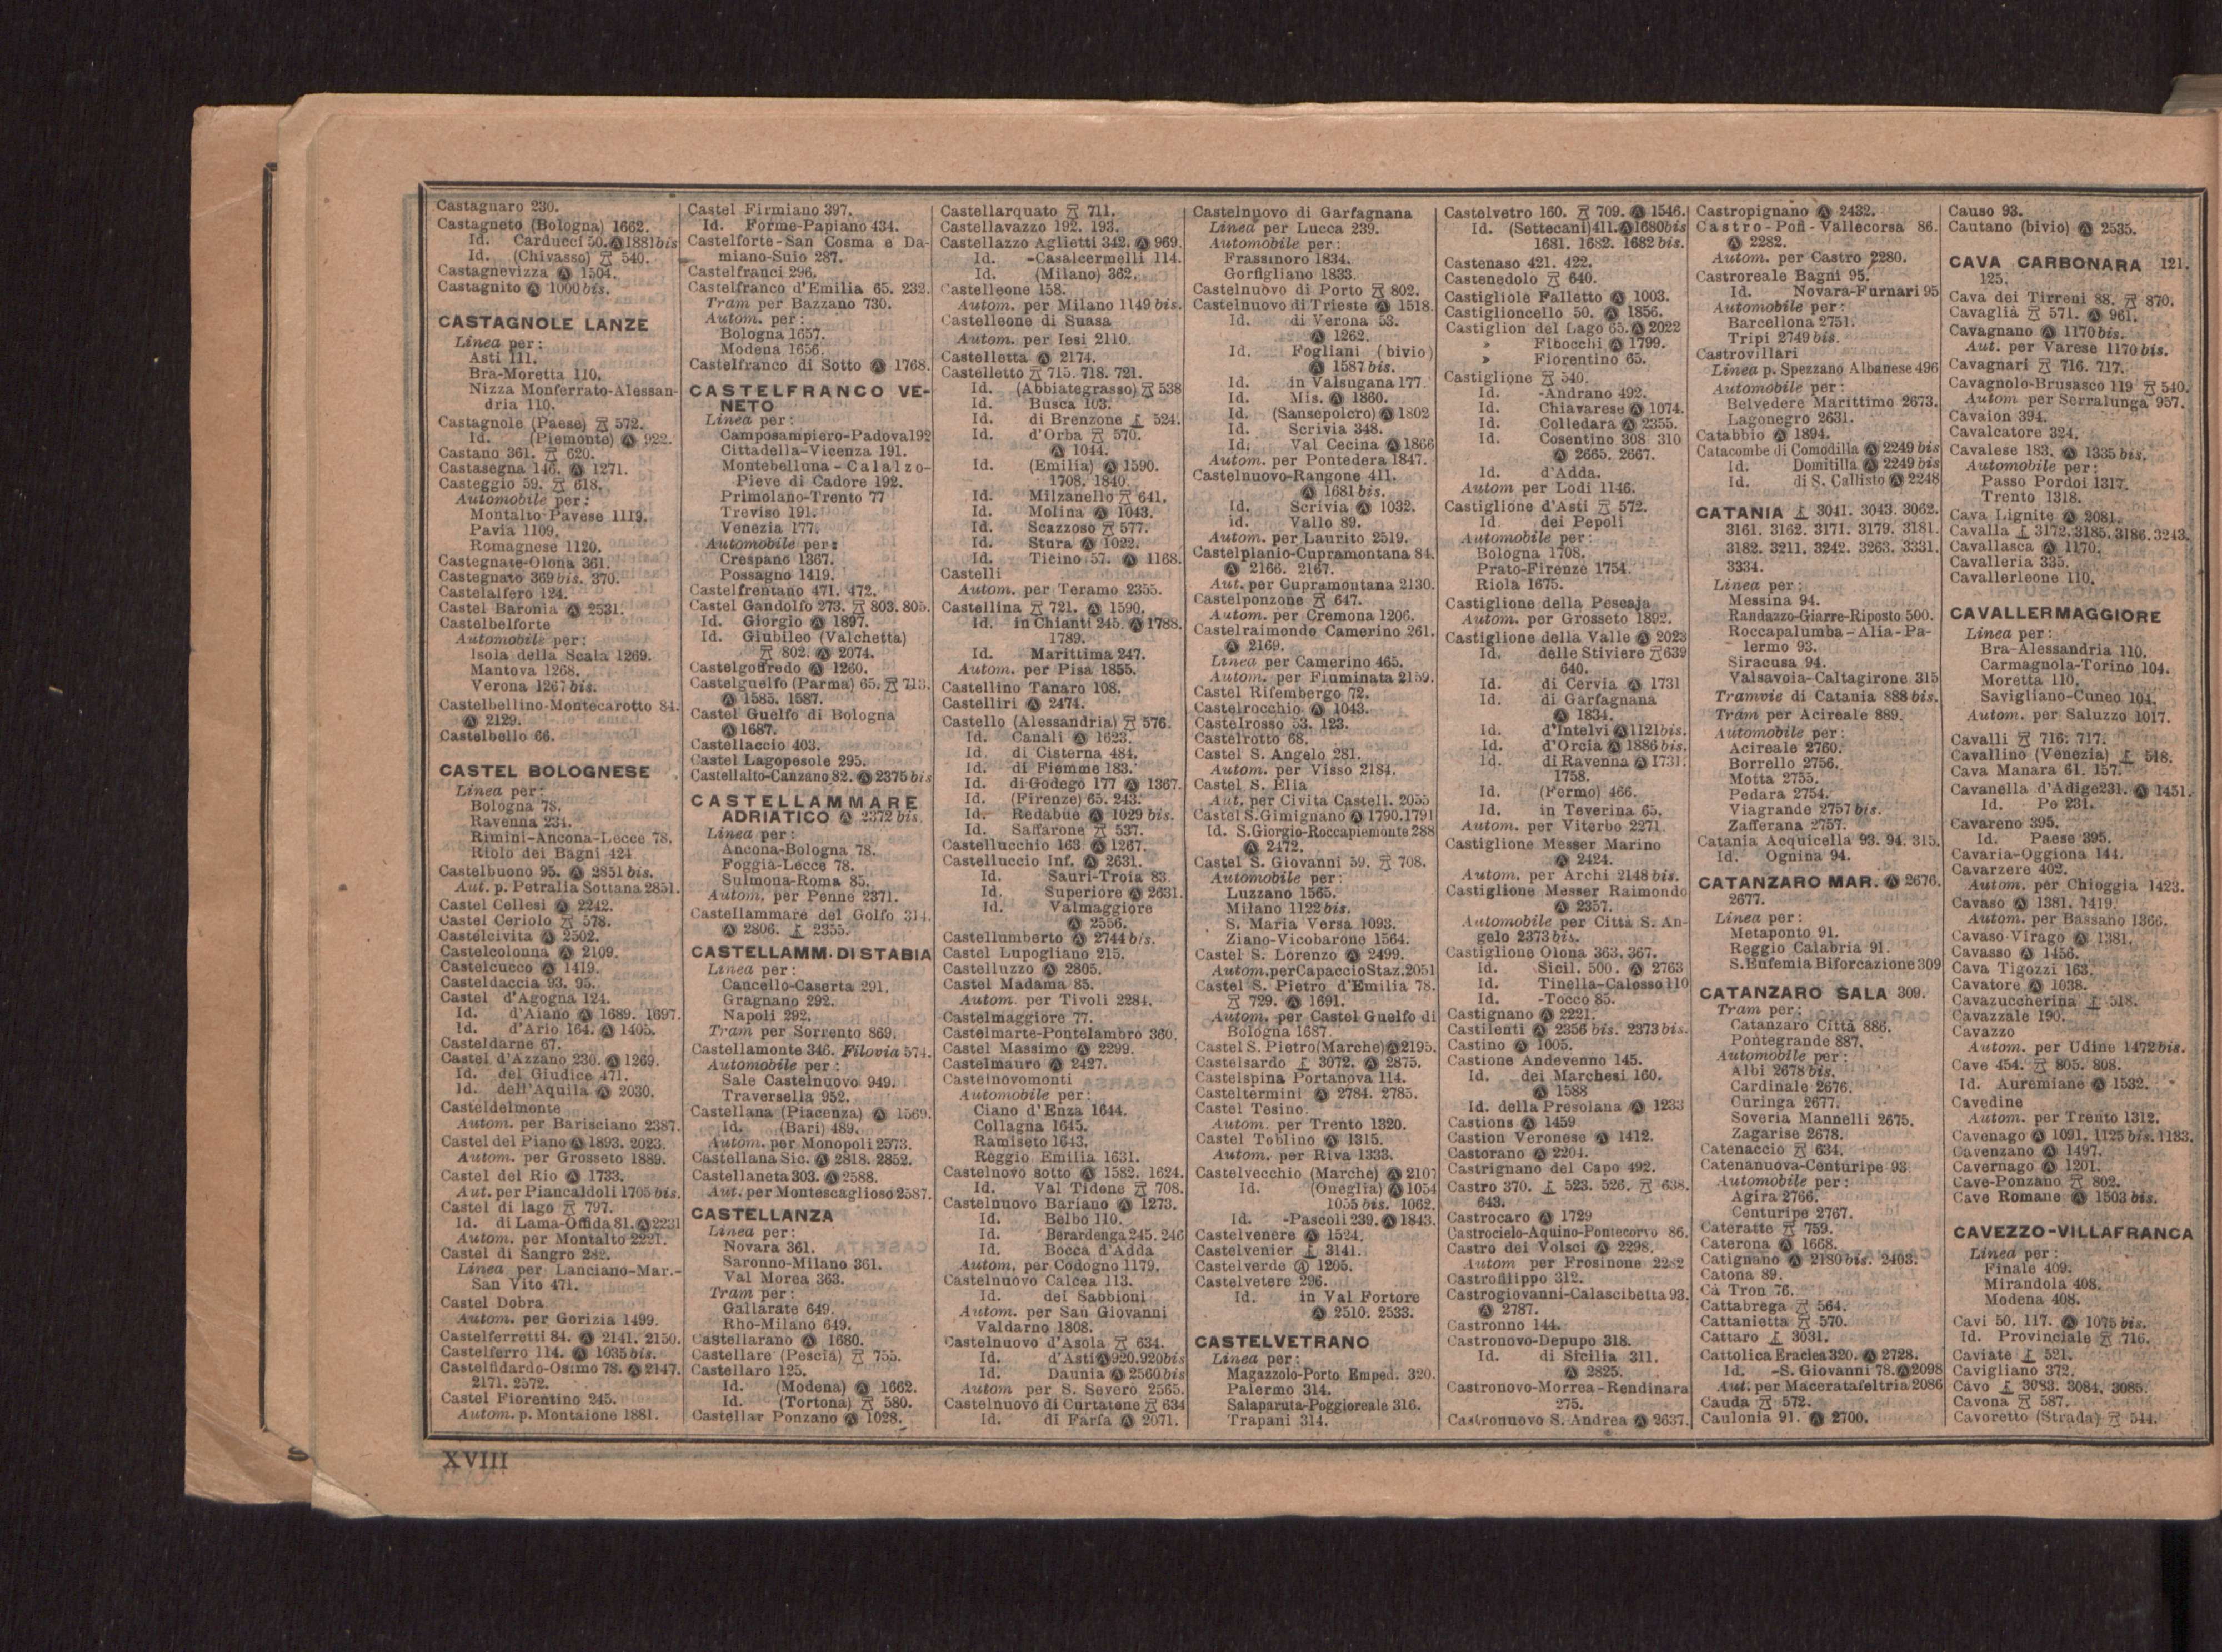 Castagnaro 230.
Castagneto (Bologna) 1662.
Id. Carducci 50. Ⓐ 1881 bis
Id. (Chivasso) 540.
Castagnevizza Ⓐ 1504.
Castagnito Ⓐ 1000 bis.
CASTAGNOLE LANZE
Linea per:
Asti 111.
Bra-Moretta 110.
Nizza Monferrato-Alessan-
dria 110.
Castagnole (Paese) 572.
Id. (Piemonte) Ⓐ 922.
Castano 361. 620.
Castasegna 146. Ⓐ 1271.
Casteggio 59. 618.
Automobile per:
Montalto Pavese 1119.
Pavia 1109.
Romagnese 1120.
Castegnate-Olona 361.
Castegnato 369 bis. 370.
Castelalfero 124.
Castel Baronia Ⓐ 2531.
Castelbelforte
Automobile per:
Isola della Scala 1269.
Mantova 1268.
Verona 1267 bis.
Castelbellino-Montecarotto 84.
Ⓐ 2129.
Castelbello 66.
CASTEL BOLOGNESE
Linea per:
Bologna 78.
Ravenna 234.
Rimini-Ancona-Lecce 78.
Riolo dei Bagni 424
Castelbuono 95. Ⓐ 2851 bis.
Aut. p. Petralia Sottana 2851.
Castel Cellesi Ⓐ 2242.
Castel Ceriolo 578.
Castelcivita Ⓐ 2502.
Castelcolonna Ⓐ 2109.
Castelcucco Ⓐ 1419.
Casteldaccia 93. 95.
Castel d'Agogna 124.
Id. d'Aiano Ⓐ 1689. 1697.
Id. d'Ario 164. Ⓐ 1405.
Casteldarne 67.
Castel d'Azzano 230. Ⓐ 1269.
Id. del Giudice 471.
Id. dell'Aquila Ⓐ 2030.
Casteldelmonte
Autom. per Barisciano 2387.
Castel del Piano Ⓐ 1893. 2023.
Autom. per Grosseto 1889.
Castel del Rio Ⓐ 1733.
Aut. per Piancaldoli 1705 bis.
Castel di lago 797.
Id. di Lama-Offida 81. Ⓐ 2231
Autom. per Montalto 2221.
Castel di Sangro 282.
Linea per Lanciano-Mar.-
San Vito 471.
Castel Dobra
Autom. per Gorizia 1499.
Castelferretti 84. Ⓐ 2141. 2150.
Castelferro 114. Ⓐ 1035 bis.
Castelfidardo-Osimo 78. Ⓐ 2147.
2171. 2572.
Castel Fiorentino 245.
Autom. p. Montaione 1881.
Castel Firmiano 397.
Id. Forme-Papiano 434.
Castelforte-San Cosma e Da-
miano-Suio 287.
Castelfranci 296.
Castelfranco d'Emilia 65. 232.
Tram per Bazzano 730.
Autom. per:
Bologna 1657.
Modena 1656.
Castelfranco di Sotto Ⓐ 1768.
CASTELFRANCO VE-
NETO
Linea per:
Camposampiero-Padova 192
Cittadella-Vicenza 191.
Montebelluna-Calalzo-
Pieve di Cadore 192.
Primolano-Trento 77
Treviso 191.
Venezia 177.
Automobile per:
Crespano 1367.
Possagno 1419.
Castelfrentano 471. 472.
Castel Gandolfo 273. 803. 805.
Id. Giorgio Ⓐ 1897.
Id. Giubileo (Valchetta)
802. Ⓐ 2074.
Castelgoffredo Ⓐ 1260.
Castelguelfo (Parma) 65. 713.
Ⓐ 1585. 1587.
Castel Guelfo di Bologna
Ⓐ 1687.
Castellaccio 403.
Castel Lagopesole 295.
Castellalto-Canzano 82. Ⓐ 2375 bis
CASTELLAMMARE
ADRIATICO Ⓐ 2372 bis.
Linea per:
Ancona-Bologna 78.
Foggia-Lecce 78.
Sulmona-Roma 85.
Autom. per Penne 2371.
Castellammare del Golfo 314.
Ⓐ 2806. 2355.
CASTELLAMM. DI STABIA
Linea per:
Cancello-Caserta 291.
Gragnano 292.
Napoli 292.
Tram per Sorrento 869.
Castellamonte 346. Filovia 574.
Automobile per:
Sale Castelnuovo 949.
Traversella 952.
Castellana (Piacenza) Ⓐ 1569.
Id. (Bari) 489.
Autom. per Monopoli 2573.
Castellana Sic. Ⓐ 2818. 2852.
Castellaneta 303. Ⓐ 2588.
Aut. per Montescaglioso 2587.
CASTELLANZA
Linea per:
Novara 361.
Saronno-Milano 361.
Val Morea 363.
Tram per:
Gallarate 649.
Rho-Milano 649.
Castellarano Ⓐ 1680.
Castellare (Pescia) 755.
Castellaro 125.
Id. (Modena) Ⓐ 1662.
Id. (Tortona) 580.
Castellar Ponzano Ⓐ 1028.
Castellarquato 711.
Castellavazzo 192. 193.
Castellazzo Aglietti 342. Ⓐ 969.
Id. -Casalcermelli 114.
Id. (Milano) 362.
Castelleone 158.
Autom. per Milano 1149 bis.
Castelleone di Suasa
Autom. per Iesi 2110.
Castelletta Ⓐ 2174.
Castelletto 715. 718. 721.
Id. (Abbiategrasso) 538
Id. Busca 103.
Id. di Brenzone 524.
Id. d'Orba 570.
Ⓐ 1044.
Id. (Emilia) Ⓐ 1590.
1708. 1840.
Id. Milzanello 641.
Id. Molina Ⓐ 1043.
Id. Scazzoso 577.
Id. Stura Ⓐ 1022.
Id. Ticino 57. Ⓐ 1168.
Castelli
Autom. per Teramo 2355.
Castellina 721. Ⓐ 1590.
Id. in Chianti 245. Ⓐ 1788.
1789.
Id. Marittima 247.
Autom. per Pisa 1855.
Castellino Tanaro 108.
Castelliri Ⓐ 2474.
Castello (Alessandria) 576.
Id. Canali Ⓐ 1623.
Id. di Cisterna 484.
Id. di Fiemme 183.
Id. di Godego 177 Ⓐ 1367.
Id. (Firenze) 65. 243.
Id. Redabue Ⓐ 1029 bis.
Id. Saffarone 537.
Castellucchio 163. Ⓐ 1267.
Castelluccio Inf. Ⓐ 2631.
Id. Sauri-Troia 83.
Id. Superiore Ⓐ 2631.
Id. Valmaggiore
Ⓐ 2556.
Castellumberto Ⓐ 2744 bis.
Castel Lupogliano 215.
Castelluzzo Ⓐ 2805.
Castel Madama 85.
Autom. per Tivoli 2284.
Castelmaggiore 77.
Castelmarte-Pontelambro 360.
Castel Massimo Ⓐ 2299.
Castelmauro Ⓐ 2427.
Castelnovomonti
Automobile per:
Ciano d'Enza 1644.
Collagna 1645.
Ramiseto 1643.
Reggio Emilia 1631.
Castelnovo sotto Ⓐ 1582. 1624.
Id. Val Tidone 708.
Castelnuovo Bariano Ⓐ 1273.
Id. Belbo 110.
Id. Berardenga 245. 246
Id. Bocca d'Adda
Autom. per Codogno 1179.
Castelnuovo Calcea 113.
Id. dei Sabbioni
Autom. per San Giovanni
Valdarno 1808.
Castelnuovo d'Asola 634.
Id. d'Asti Ⓐ 920. 920 bis
Id. Daunia Ⓐ 2560 bis
Autom per S. Severo 2565.
Castelnuovo di Curtatone 634
Id. di Farfa Ⓐ 2071.
Castelnuovo di Garfagnana
Linea per Lucca 239.
Automobile per:
Frassinoro 1834.
Gorfigliano 1833.
Castelnuovo di Porto 802.
Castelnuovo di Trieste Ⓐ 1518.
Id. di Verona 53.
Ⓐ 1262.
Id. Fogliani (bivio)
Ⓐ 1587 bis.
Id. in Valsugana 177.
Id. Mis. Ⓐ 1860.
Id. (Sansepolcro) Ⓐ 1802
Id. Scrivia 348.
Id. Val Cecina Ⓐ 1866
Autom. per Pontedera 1847.
Castelnuovo-Rangone 411.
Ⓐ 1681 bis.
Id. Scrivia Ⓐ 1032.
id. Vallo 89.
Autom. per Laurito 2519.
Castelplanio-Cupramontana 84.
Ⓐ 2166. 2167.
Aut. per Cupramontana 2130.
Castelponzone 647.
Autom. per Cremona 1206.
Castelraimondo Camerino 261.
Ⓐ 2169.
Linea per Camerino 465.
Autom. per Fiuminata 2159.
Castel Rifembergo 72.
Castelrocchio Ⓐ 1043.
Castelrosso 53. 123.
Castelrotto 68.
Castel S. Angelo 281.
Autom. per Visso 2184.
Castel S. Elia
Aut. per Civita Castell. 2055
Castel S. Gimignano Ⓐ 1790. 1791
Id. S. Giorgio-Roccapiemonte 288
Ⓐ 2472.
Castel S. Giovanni 59. 708.
Automobile per:
Luzzano 1565.
Milano 1122 bis.
S. Maria Versa 1093.
Ziano-Vicobarone 1564.
Castel S. Lorenzo Ⓐ 2499.
Autom. per Capaccio Staz. 2051
Castel S. Pietro d'Emilia 78.
729. Ⓐ 1691.
Autom. per Castel Guelfo di
Bologna 1687.
Castel S. Pietro (Marche) Ⓐ 2195.
Castelsardo 3072. Ⓐ 2875.
Castelspina Portanova 114.
Casteltermini Ⓐ 2784. 2785.
Castel Tesino
Autom. per Trento 1320.
Castel Toblino Ⓐ 1315.
Autom. per Riva 1333.
Castelvecchio (Marche) Ⓐ 2107
Id. (Oneglia) Ⓐ 1054
1055 bis. 1062.
Id. -Pascoli 239. Ⓐ 1843.
Castelvenere Ⓐ 1524.
Castelvenier 3141.
Castelverde Ⓐ 1205.
Castelvetere 296.
Id. in Val Fortore
Ⓐ 2510. 2533.
CASTELVETRANO
Linea per:
Magazzolo-Porto Emped. 320.
Palermo 314.
Salaparuta-Poggioreale 316.
Trapani 314.
Castelvetro 160. 709. Ⓐ 1546.
Id. (Settecani) 411. Ⓐ 1680 bis
1681. 1682. 1682 bis.
Castenaso 421. 422.
Castenedolo 640.
Castigliole Falletto Ⓐ 1003.
Castiglioncello 50. Ⓐ 1856.
Castiglion del Lago 65. Ⓐ 2022
» Fibocchi Ⓐ 1799.
» Fiorentino 65.
Castiglione 540.
Id. -Andrano 492.
Id. Chiavarese Ⓐ 1074.
Id. Colledara Ⓐ 2355.
Id. Cosentino 308 310
Ⓐ 2665. 2667.
Id. d'Adda.
Autom per Lodi 1146.
Castiglione d'Asti 572.
Id. dei Pepoli
Automobile per:
Bologna 1708.
Prato-Firenze 1754.
Riola 1675.
Castiglione della Pescaja
Autom. per Grosseto 1892.
Castiglione della Valle Ⓐ 2023
Id. delle Stiviere 639
640.
Id. di Cervia Ⓐ 1731
Id. di Garfagnana
Ⓐ 1834.
Id. d'Intelvi Ⓐ 1121 bis.
Id. d'Orcia Ⓐ 1886 bis.
Id. di Ravenna Ⓐ 1731.
1758.
Id. (Fermo) 466.
Id. in Teverina 65.
Autom. per Viterbo 2271.
Castiglione Messer Marino
Ⓐ 2424.
Autom. per Archi 2148 bis.
Castiglione Messer Raimondo
Ⓐ 2357.
Automobile per Città S. An-
gelo 2373 bis.
Castiglione Olona 363. 367.
Id. Sicil. 500. Ⓐ 2763
Id. Tinella-Calosso 110
Id. -Tocco 85.
Castignano Ⓐ 2221.
Castilenti Ⓐ 2356 bis. 2373 bis.
Castino Ⓐ 1005.
Castione Andevenno 145.
Id. dei Marchesi 160.
Ⓐ 1588
Id. della Presolana Ⓐ 1233
Castions Ⓐ 1459
Castion Veronese Ⓐ 1412.
Castorano Ⓐ 2204.
Castrignano del Capo 492.
Castro 370. 523. 526. 638.
643.
Castrocaro Ⓐ 1729
Castrocielo-Aquino-Pontecorvo 86.
Castro dei Volsci Ⓐ 2298.
Autom per Frosinone 2282
Castrofilippo 312.
Castrogiovanni-Calascibetta 93.
Ⓐ 2787.
Castronno 144.
Castronovo-Depupo 318.
Id. di Sicilia 311.
Ⓐ 2825.
Castronovo-Morrea-Rendinara
275.
Castronuovo S. Andrea Ⓐ 2637.
Castropignano Ⓐ 2432.
Castro-Pofi-Vallecorsa 86.
Ⓐ 2282.
Autom. per Castro 2280.
Castroreale Bagni 95.
Id. Novara-Furnari 95
Automobile per:
Barcellona 2751.
Tripi 2749 bis.
Castrovillari
Linea p. Spezzano Albanese 496
Automobile per:
Belvedere Marittimo 2673.
Lagonegro 2631.
Catabbio Ⓐ 1894.
Catacombe di Comodilla Ⓐ 2249 bis
Id. Domitilla Ⓐ 2249 bis
Id. di S. Callisto Ⓐ 2248
CATANIA 3041. 3043. 3062.
3161. 3162. 3171. 3179. 3181.
3182. 3211. 3242. 3263. 3331.
3334.
Linea per:
Messina 94.
Randazzo-Giarre-Riposto 500.
Roccapalumba-Alia-Pa-
lermo 93.
Siracusa 94.
Valsavoia-Caltagirone 315
Tramvie di Catania 888 bis.
Tram per Acireale 889.
Automobile per:
Acireale 2760.
Borrello 2756.
Motta 2755.
Pedara 2754.
Viagrande 2757 bis.
Zafferana 2757.
Catania Acquicella 93. 94. 315.
Id. Ognina 94.
CATANZARO MAR. Ⓐ 2676.
2677.
Linea per:
Metaponto 91.
Reggio Calabria 91.
S. Eufemia Biforcazione 309
CATANZARO SALA 309.
Tram per:
Catanzaro Città 886.
Pontegrande 887.
Automobile per:
Albi 2678 bis.
Cardinale 2676.
Curinga 2677.
Soveria Mannelli 2675.
Zagarise 2678.
Catenaccio 634.
Catenanuova-Centuripe 93.
Automobile per:
Agira 2766.
Centuripe 2767.
Cateratte 759.
Caterona Ⓐ 1668.
Catignano Ⓐ 2180 bis. 2403.
Catona 89.
Cà Tron 76.
Cattabrega 564.
Cattanietta 570.
Cattaro 3031.
Cattolica Eraclea 320. Ⓐ 2728.
Id. -S. Giovanni 78. Ⓐ 2098
Aut. per Maceratafeltria 2086
Cauda 572.
Caulonia 91. Ⓐ 2700.
Causo 93.
Cautano (bivio) Ⓐ 2535.
CAVA CARBONARA 121.
125.
Cava dei Tirreni 88. 870.
Cavaglià 571. Ⓐ 961.
Cavagnano Ⓐ 1170 bis.
Aut. per Varese 1170 bis.
Cavagnari 716. 717.
Cavagnolo-Brusasco 119 540.
Autom per Serralunga 957.
Cavaion 394.
Cavalcatore 324.
Cavalese 183. Ⓐ 1335 bis.
Automobile per:
Passo Pordoi 1317.
Trento 1318.
Cava Lignite Ⓐ 2081.
Cavalla 3172. 3185. 3186. 3243.
Cavallasca Ⓐ 1170.
Cavalleria 335.
Cavallerleone 110.
CAVALLERMAGGIORE
Linea per:
Bra-Alessandria 110.
Carmagnola-Torino 104.
Moretta 110.
Savigliano-Cuneo 104.
Autom. per Saluzzo 1017.
Cavalli 716. 717.
Cavallino (Venezia) 518.
Cava Manara 61. 157.
Cavanella d'Adige 231. Ⓐ 1451.
Id. Po 231.
Cavareno 395.
Id. Paese 395.
Cavaria-Oggiona 144.
Cavarzere 402.
Autom. per Chioggia 1423.
Cavaso Ⓐ 1381. 1419.
Autom. per Bassano 1366.
Cavaso Virago Ⓐ 1381.
Cavasso Ⓐ 1456.
Cava Tigozzi 163.
Cavatore Ⓐ 1038.
Cavazuccherina 518.
Cavazzale 190.
Cavazzo
Autom. per Udine 1472 bis.
Cave 454. 805. 808.
Id. Auremiane Ⓐ 1532.
Cavedine
Autom. per Trento 1312.
Cavenago Ⓐ 1091. 1125 bis. 1133.
Cavenzano Ⓐ 1497.
Cavernago Ⓐ 1201.
Cave-Ponzano 802.
Cave Romane Ⓐ 1503 bis.
CAVEZZO-VILLAFRANCA
Linea per:
Finale 409.
Mirandola 408.
Modena 408.
Cavi 50. 117. Ⓐ 1075 bis.
Id. Provinciale 716.
Caviate 521.
Cavigliano 372.
Cavo 3083. 3084. 3085.
Cavona 587.
Cavoretto (Strada) 544.
XVIII